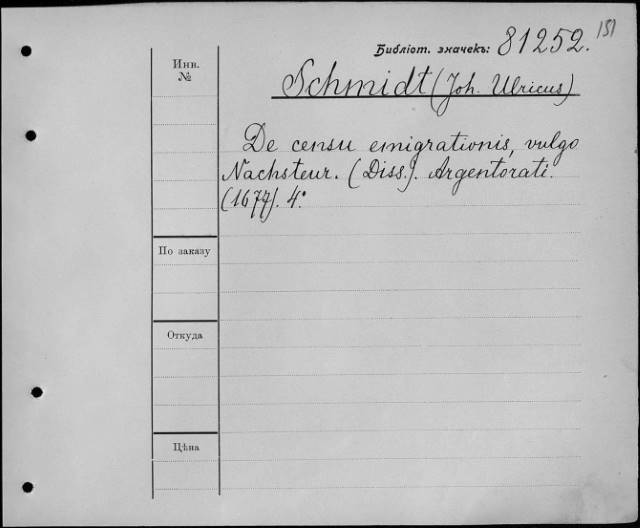 151
Библіот. значекъ: 81252.
Инв.
№
Schmidt (Joh. Ulricus)
De censu emigrationis, vulgo
Nachsteur. (Diss.). Argentorati.
(1677). 4°.
По заказу
Откуда
Цѣна